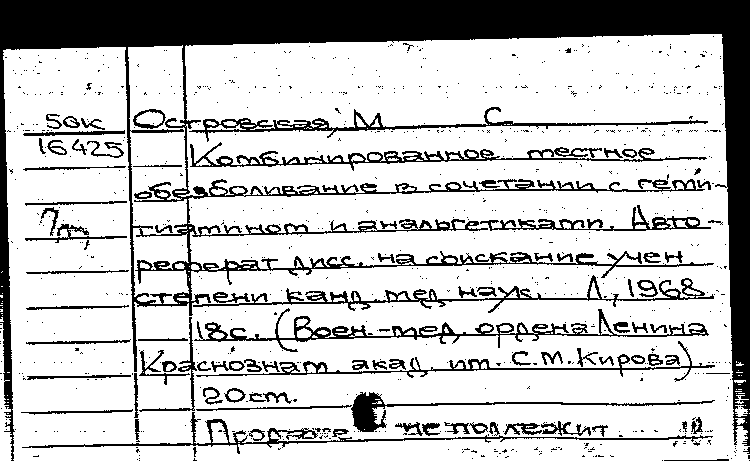 56к Островская, М С.
16425 Комбинированное местное
обезболивание в сочетании с геми-
тиамином и анальгетиками. Авто-
реферат дисс. на соискание учен.
степени канд. мед. наук. Л., 1968.
18с. (Воен.-мед. ордена Ленина
Краснознам. акад. им. С.М.Кирова).
20см.
Продаже не подлежит.